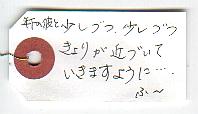 析の彼と少しづつ、少しづつ
きょりが近づいて
いきますように…。
ふ～